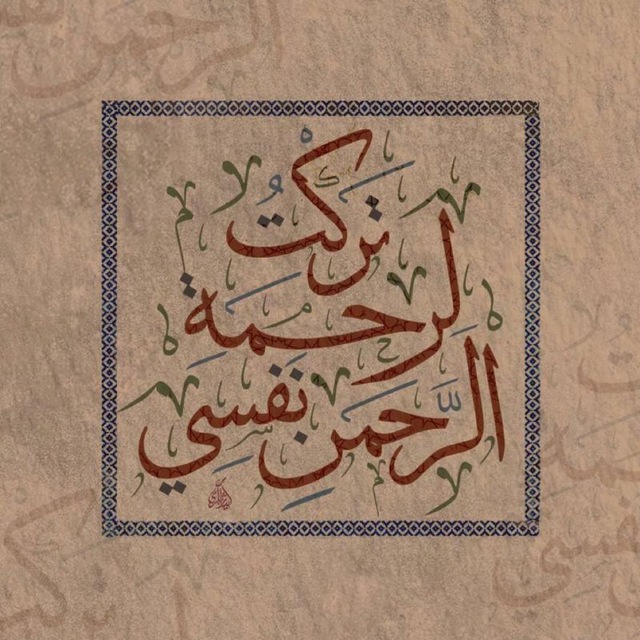 تَركتُ
لرحمة
الرَّحمن نَفسِي